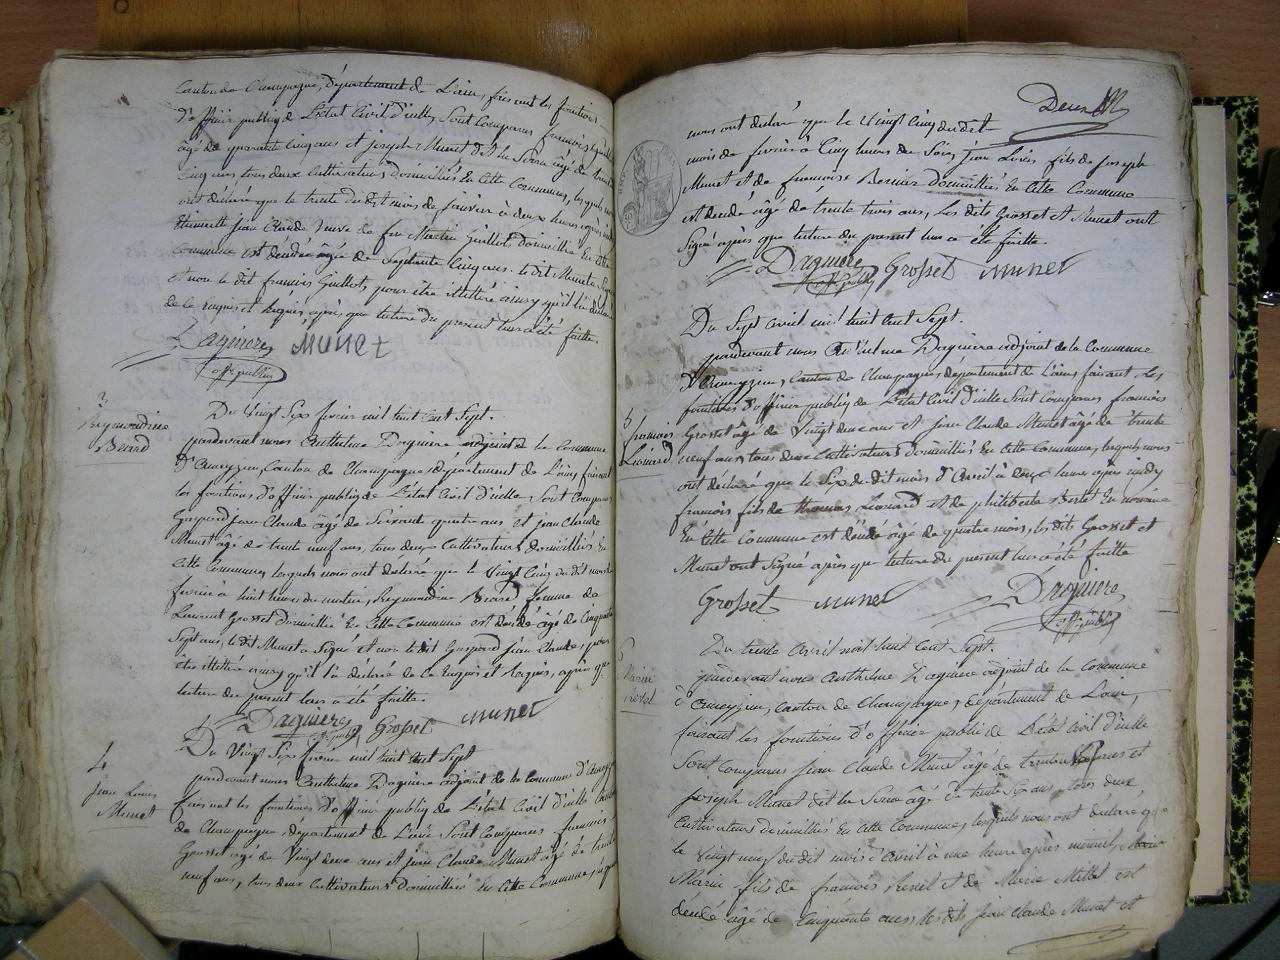 Canton de Champagne, Département de L'ain, faisant les fonctions
D'officier public de L'état Civil d'icelle, Sont Comparus françois Guillot
âgé de quarante cinq ans et joseph Munet dit la Serra âgé de trente
cinq ans tous deux Cultivateurs, domiciliés En Cette Commune, lesquels nous
ont déclaré que le trente du dit mois de janvier à deux heures après
jean Claude veuve de feu Martin Guillot domiciliée En Cette
Commune est décédée âgée de Septante Cinq ans. le dit Munet a Signé
et non le dit françois Guillot, pour être illitéré ainsy qu'il l'a déclaré
de ce requis et Requis, après que lecture du present leur a été faitte.
Dagniere Munet
off. public
3
Reymondine
Berard
Du Vingt Six fevrier mil huit Cent Sept.
pardevant nous Anthelme Dagniere adjoint de la Commune
D' Canton de Champagne, département de L'ain, faisant
les fonctions d'officier public de L'état Civil d'icelle, Sont Comparus
Gaspard jean Claude âgé de Soixante quatre ans et jean Claude
Munet âgé de trente neuf ans, tous deux Cultivateurs, domiciliés En
Cette Commune, lesquels nous ont déclaré que le Vingt Cinq du dit mois de
fevrier à huit heures du matin, Reymondine Berard femme de
Laurent Grosset domiciliée En Cette Commune est décédée âgée de Cinquante
Sept ans, le dit Munet a Signé et non le dit Gaspard jean Claude, pour
être illitéré ainsy qu'il l'a déclaré de ce Enquis et Requis, après que
lecture du present leur a été faitte.
Dagniere Grosset Munet
off. public
4
Jean Louis
Munet
Du Vingt Six fevrier mil huit Cent Sept
pardevant nous Anthelme Dagniere adjoint de la Commune
faisant les fonctions D'officier public de L'état Civil d'icelle Canton
de Champagne, département de L'ain Sont Comparus françois
Grosset âgé de Vingt deux ans et jean Claude Munet âgé de trente
neuf ans, tous deux Cultivateurs domiciliés En Cette Commune,
nous ont déclaré que le Vingt Cinq du dit
mois de fevrier à Cinq heures du Soir, jean Louis fils de Joseph
Munet et de francoise Bernier domiciliés En Cette Commune
est décédé âgé de trente trois ans, Les dits Grosset et Munet ont
Signé après que lecture du present leur a été faitte.
Dagniere Grosset Munet
off. public
5
françois
Lionard
Du Sept avril mil huit Cent Sept.
pardevant nous Anthelme Dagniere adjoint de la Commune
Canton de Champagne, département de L'ain faisant les
fonctions d'officier public de L'état Civil d'icelle Sont Comparus françois
Grosset âgé de Vingt deux ans et jean Claude Munet âgé de trente
neuf ans, tous deux Cultivateurs, domiciliés En Cette Commune, lesquels nous
ont déclaré que le Six du dit mois d'Avril à deux heures après midy
françois fils de thomas Lionard et de philiberte En nourice
En Cette Commune est décédé âgé de quatre mois, les dits Grosset et
Munet ont Signé après que lecture du present leur a été faitte
Grosset Munet Dagniere
off. public
6
Marin
Revel
Du trente Avril mil huit Cent Sept.
pardevant nous Anthelme Dagniere adjoint de la Commune
Canton de Champagne, département de L'ain,
faisant les fonctions d'officier public de L'état Civil d'icelle
Sont Comparus jean Claude Munet âgé de trente neuf ans et
joseph Munet dit la Serra âgé de trente Cinq ans, tous deux
Cultivateurs domiciliés En Cette Commune, lesquels nous ont déclaré que
le Vingt neuf du dit mois d'Avril à une heure après
Marin fils de françois Revel et de Marie Millet est
décédé âgé de Cinquante ans. les dits jean Claude Munet et